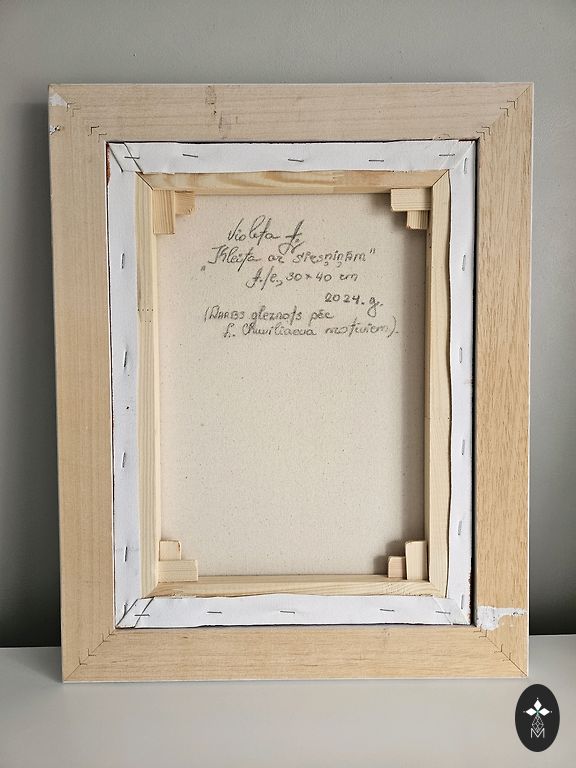 Violeta J.
"Kleita ar spēsniņām"
A./e., 30 x 40 cm
2024. g.
(DARBS gleznots pēc
motīviem).
M